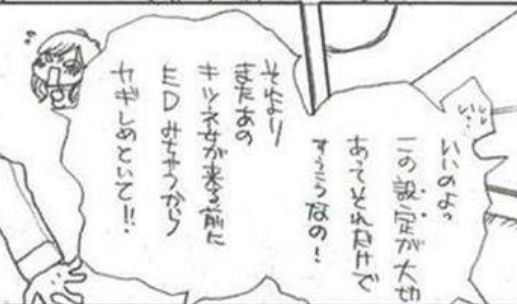 いいのよっ
この設定が大切
あってそれだけで
すうこうなの!
それより
またあの
キツネ女が来る前に
EDみちゃうから
カギしめといて!!